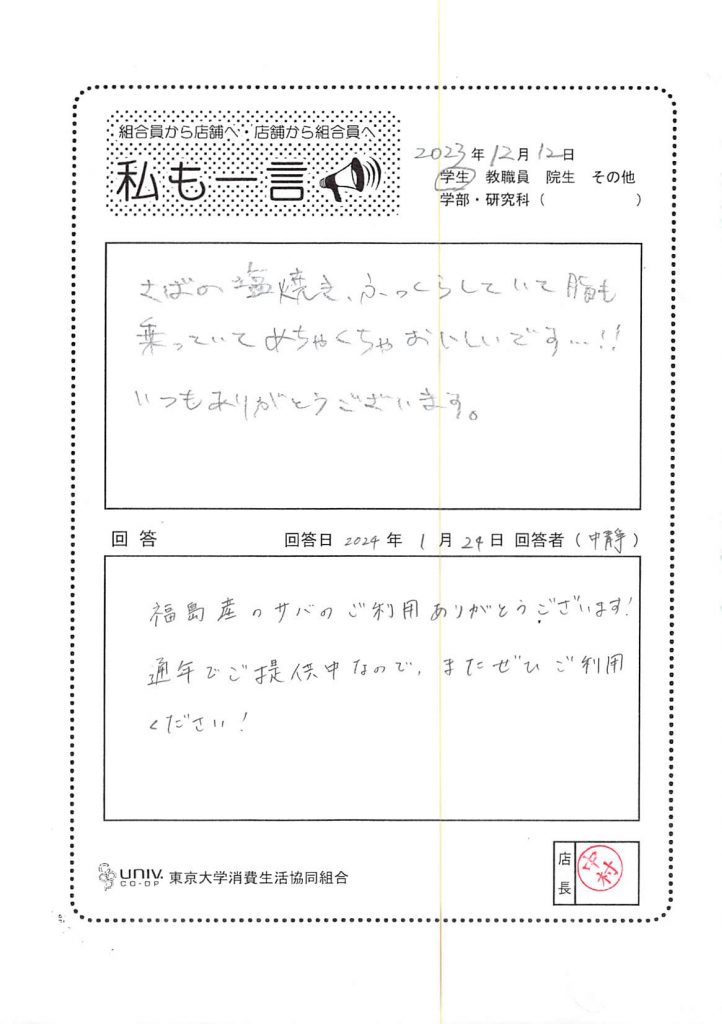 組合員から店舗へ・店舗から組合員へ
私も一言
2023年12月12日
学生 教職員 院生 その他
学部・研究科（ ）
さばの塩焼き、ふっくらしていて脂も
乗っていてめちゃくちゃおいしいです…!!
いつもありがとうございます。
回答 回答日 2024年1月24日 回答者（中静）
福島産のサバのご利用ありがとうございます!
通年でご提供中なので、またぜひご利用
ください!
UNIV. CO-OP 東京大学消費生活協同組合
店長 中村